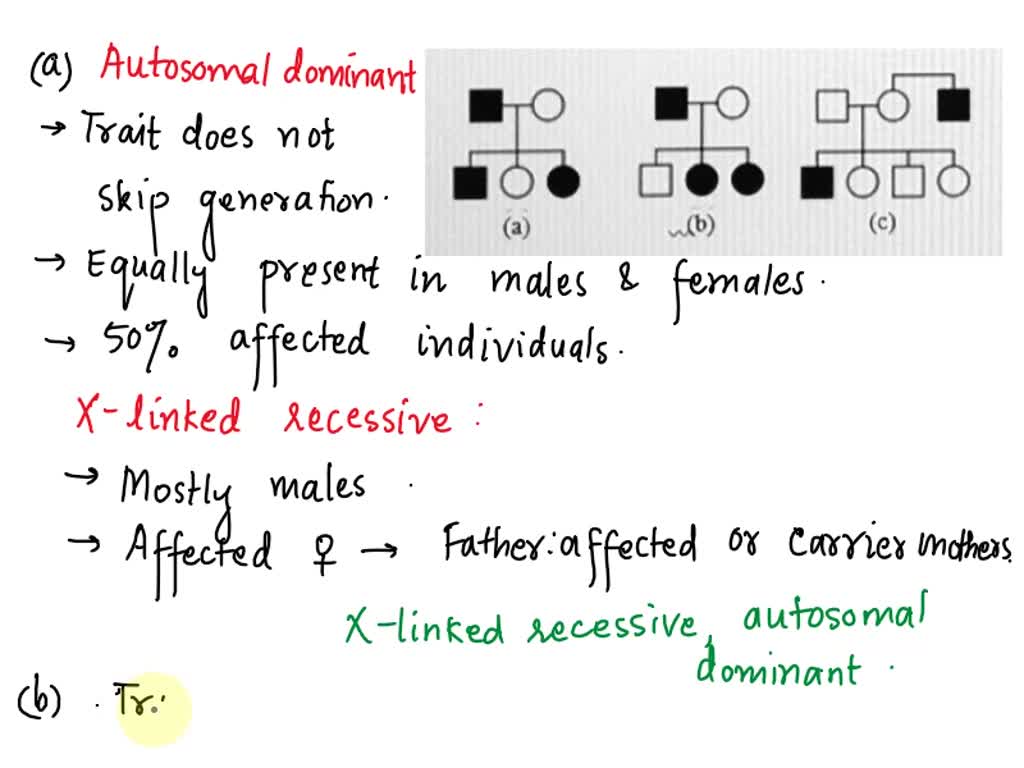 (a) Autosomal dominant
→ Trait does not
skip generation.
(a) (b) (c)
→ Equally present in males & females.
→ 50% affected individuals.
X-linked recessive :
→ Mostly males.
→ Affected ♀ → Father: affected or carrier mothers.
X-linked recessive, autosomal
dominant.
(b) . Tr.